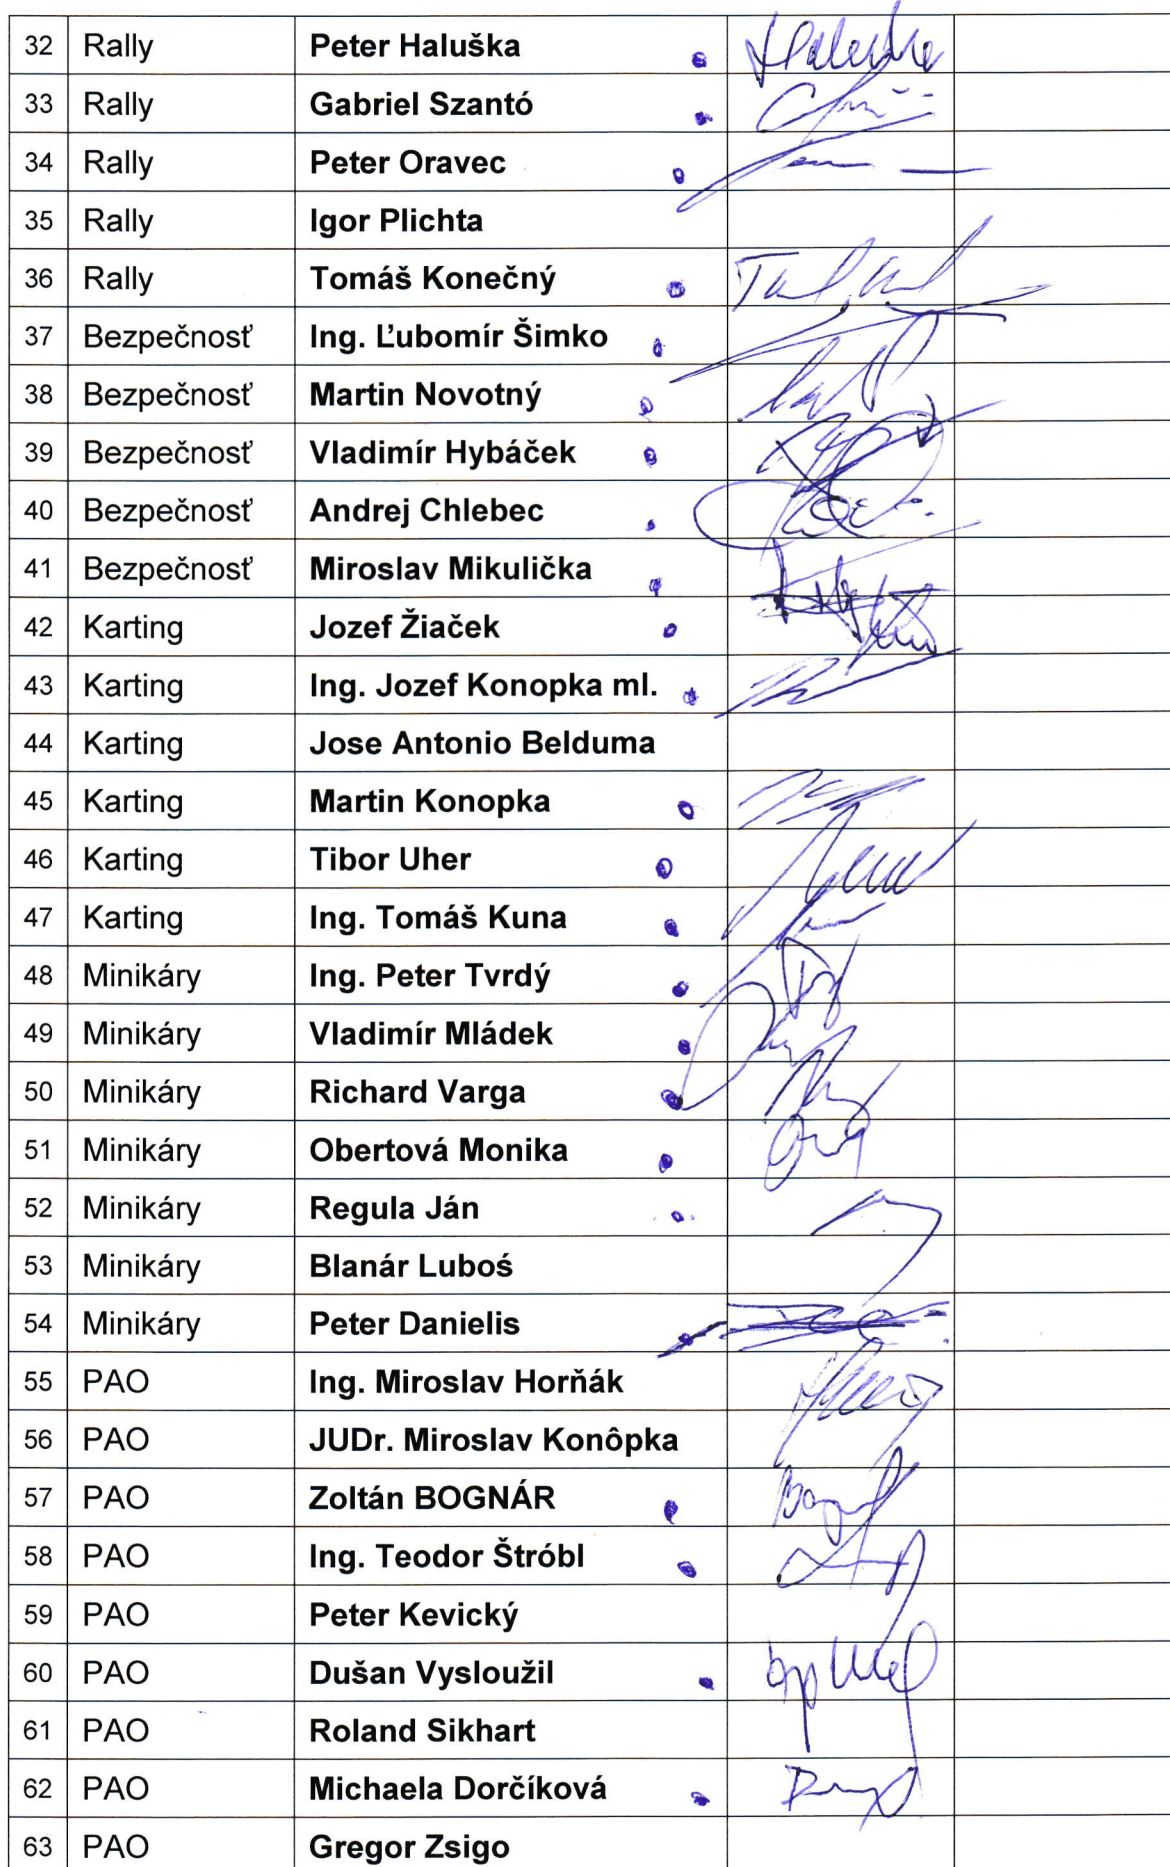 32 Rally Peter Haluška Haluška
33 Rally Gabriel Szantó
34 Rally Peter Oravec
35 Rally Igor Plichta
36 Rally Tomáš Konečný
37 Bezpečnosť Ing. Ľubomír Šimko
38 Bezpečnosť Martin Novotný
39 Bezpečnosť Vladimír Hybáček
40 Bezpečnosť Andrej Chlebec
41 Bezpečnosť Miroslav Mikulička
42 Karting Jozef Žiaček
43 Karting Ing. Jozef Konopka ml.
44 Karting Jose Antonio Belduma
45 Karting Martin Konopka
46 Karting Tibor Uher
47 Karting Ing. Tomáš Kuna
48 Minikáry Ing. Peter Tvrdý
49 Minikáry Vladimír Mládek
50 Minikáry Richard Varga
51 Minikáry Obertová Monika
52 Minikáry Regula Ján
53 Minikáry Blanár Luboś
54 Minikáry Peter Danielis
55 PAO Ing. Miroslav Horňák
56 PAO JUDr. Miroslav Konôpka
57 PAO Zoltán BOGNÁR
58 PAO Ing. Teodor Štróbl
59 PAO Peter Kevický
60 PAO Dušan Vysloužil
61 PAO Roland Sikhart
62 PAO Michaela Dorčíková
63 PAO Gregor Zsigo